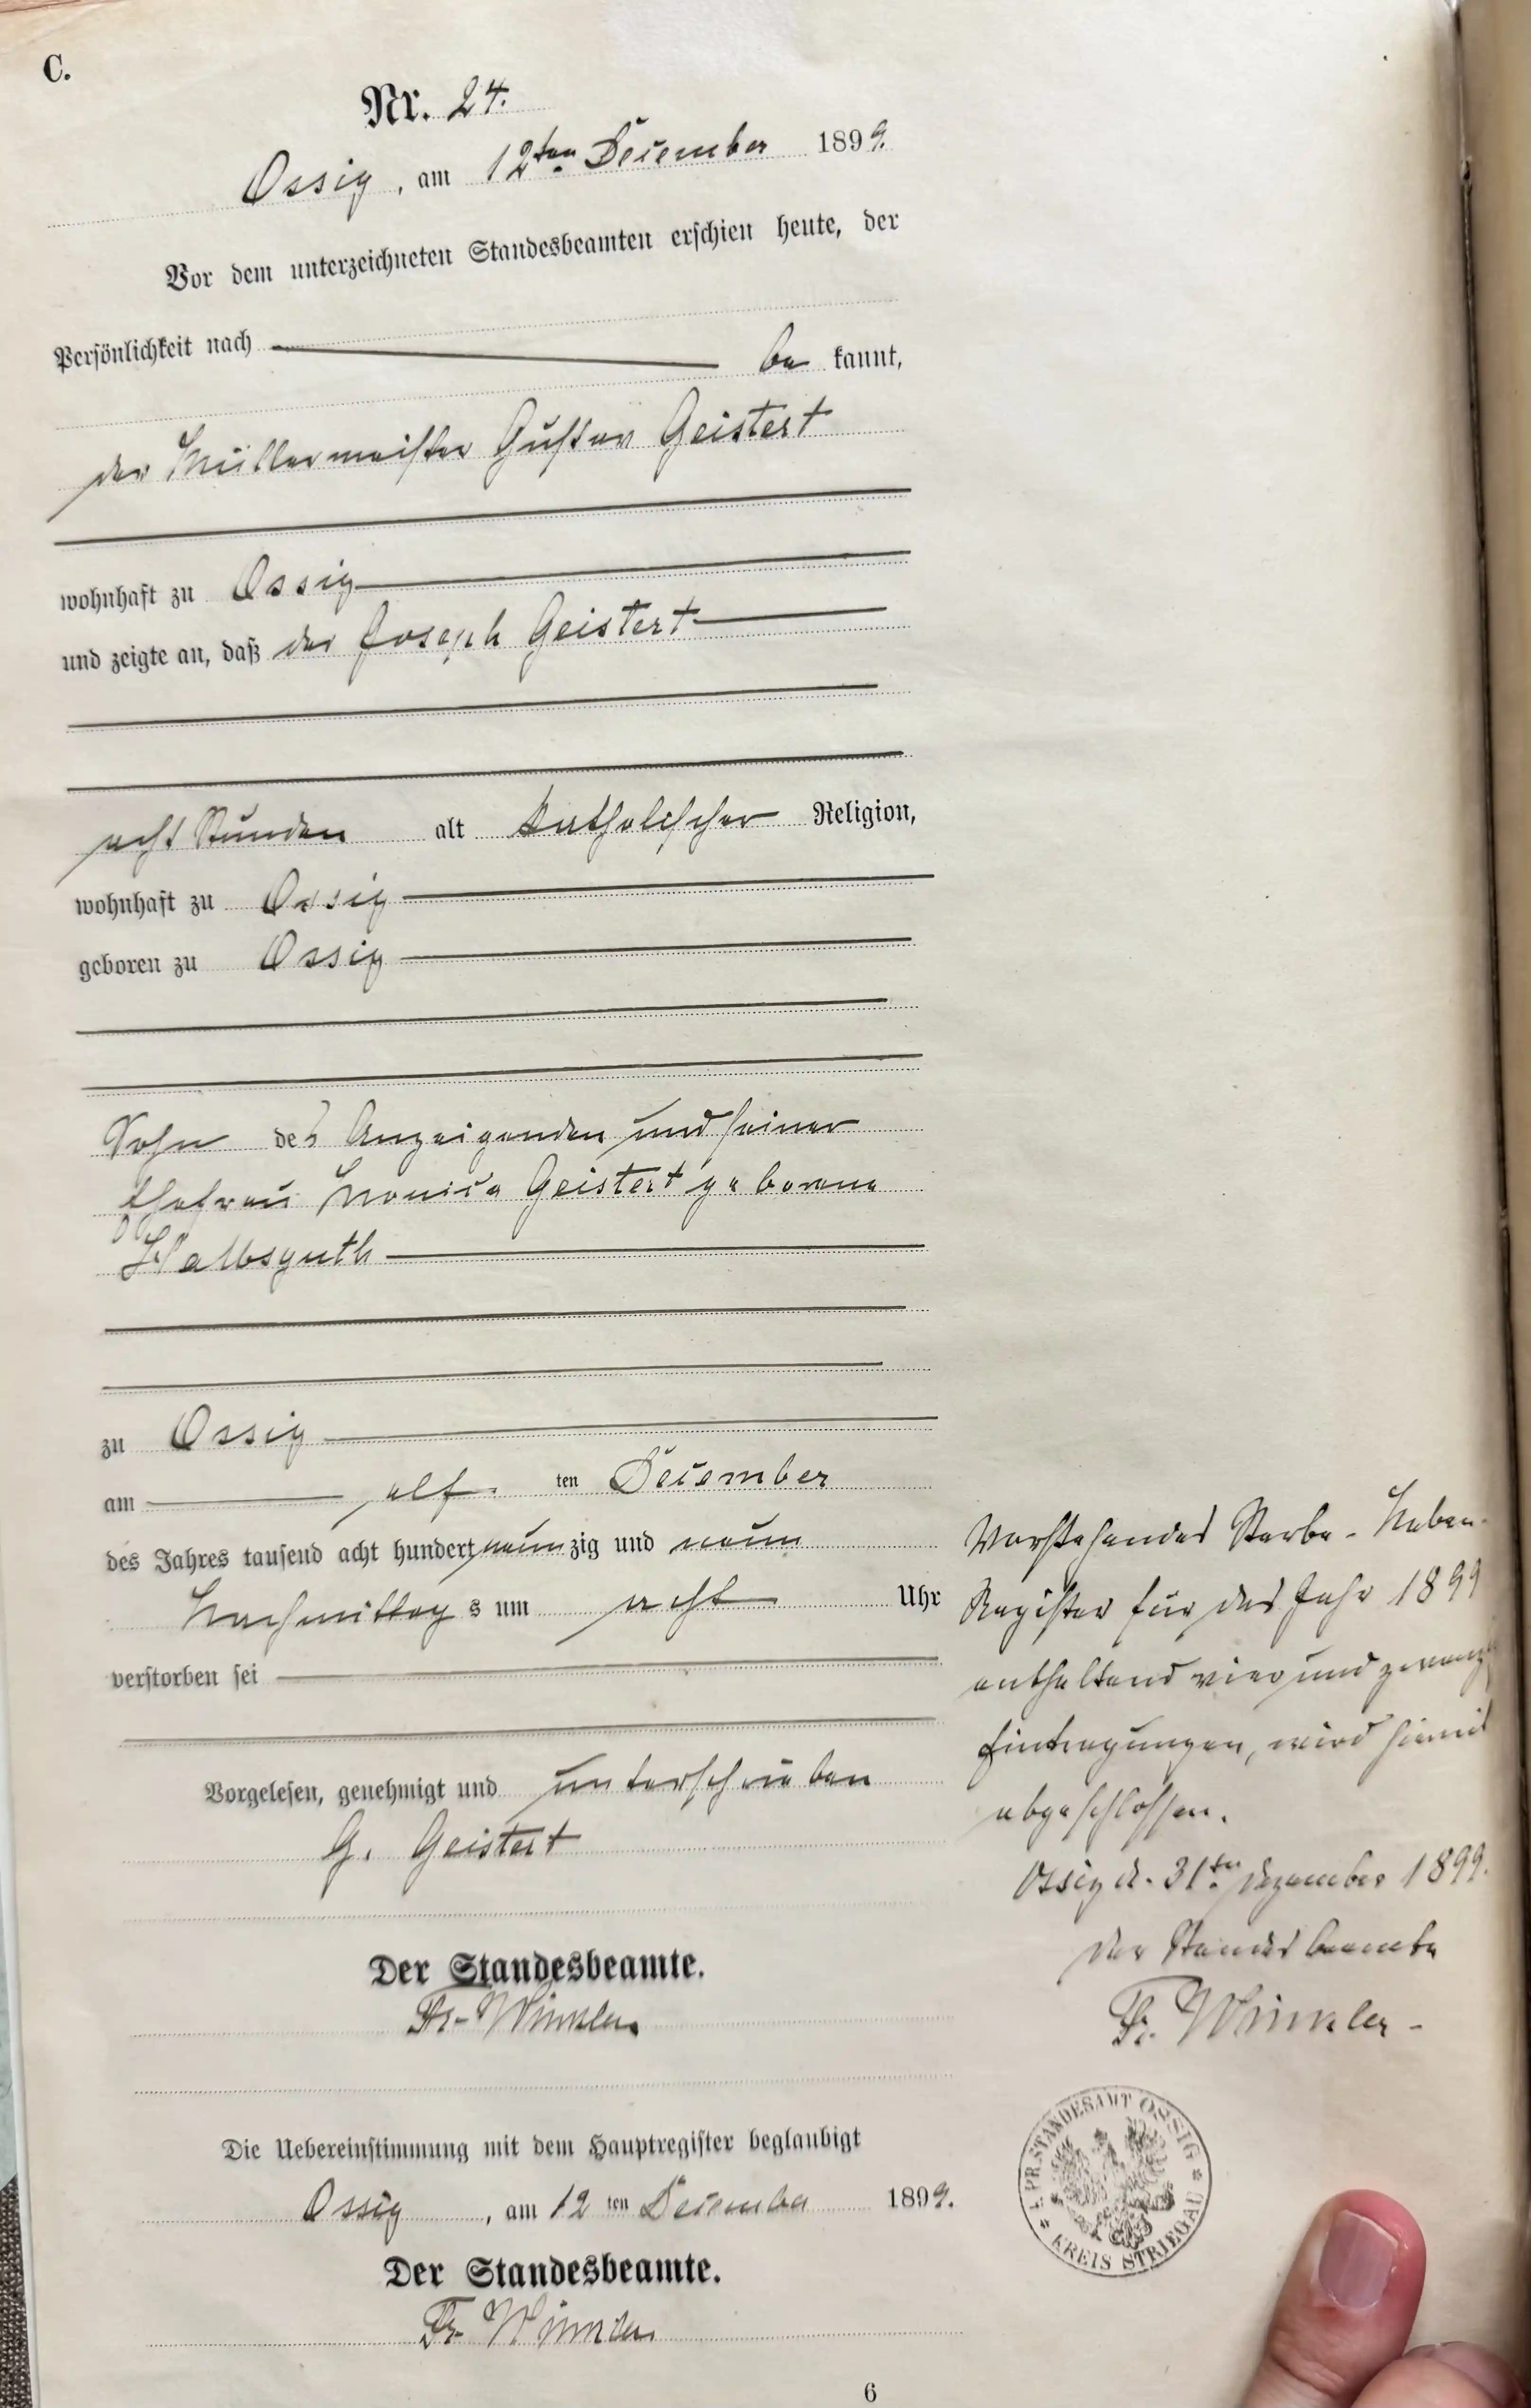 C.
Nr. 24.
Ossig, am 12ten December 1899.
Vor dem unterzeichneten Standesbeamten erschien heute, der
Persönlichkeit nach be kannt,
der Müllermeister Gustav Geistert
wohnhaft zu Ossig
und zeigte an, daß der Joseph Geistert
acht Stunden alt katholischer Religion,
wohnhaft zu Ossig
geboren zu Ossig
Sohn des Anzeigenden und seiner
Ehefrau Monica Geistert geborene
Halbsguth
zu Ossig
am elf ten December
des Jahres tausend acht hundert neun zig und neun
Nachmittag s um acht Uhr
verstorben sei
Vorgelesen, genehmigt und unterschrieben
G. Geistert
Der Standesbeamte.
Fr. Winkler
Die Uebereinstimmung mit dem Hauptregister beglaubigt
Ossig, am 12 ten December 1899.
Der Standesbeamte.
Fr. Winkler
6
Vorstehendes Sterbe-Neben-
Register für das Jahr 1899
enthaltend vier und zwanzig
Eintragungen, wird hiermit
abgeschlossen.
Ossig d. 31ten Dezember 1899.
Der Standesbeamte
Fr. Winkler
K. PR. STANDESAMT OSSIG
* KREIS STRIEGAU *